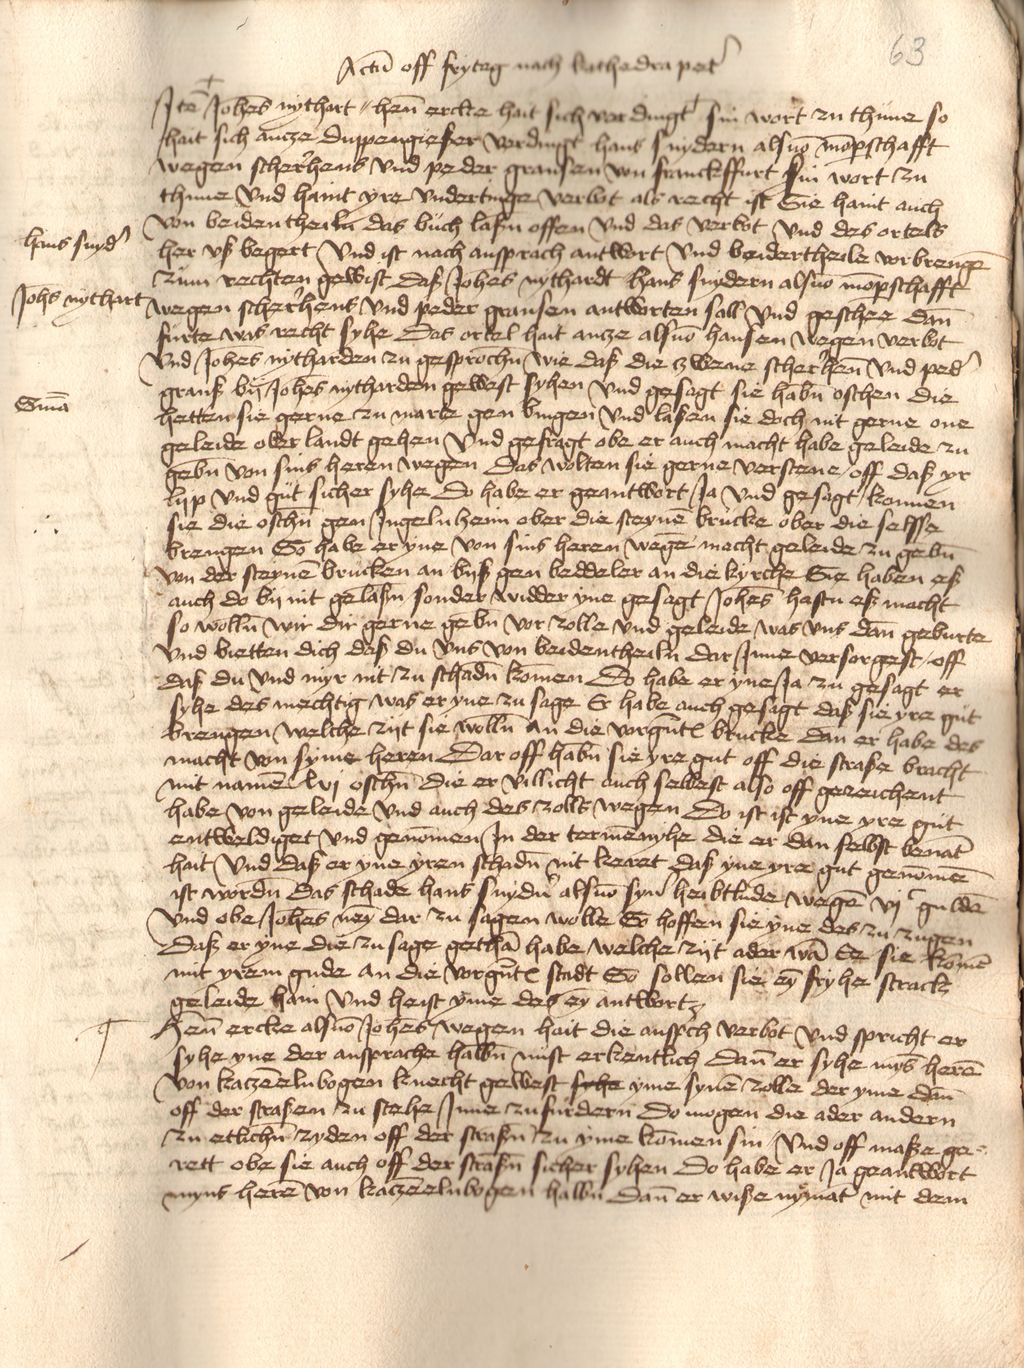 63
Actu off frytag nach kathedra petr
Ite Johes nythart / hen ercke hait sich verdingt sin wort zu thune so
hait sich antze duppengießer verdingt hans snydern alsuo momperschafft
wegen scherhens und peder gransen von franckffurt sin wort zu
thune und haint yre underdinge verbot als recht ist Sie haint auch
von beidentheiln das buch laßn offen und das verbot und des ortels
her uß begert und ist nach ansprach antwort und beidertheile vorbrenge
zum rechten gewist Daß Johes nythardt hans snydern alsuo momperschafft
wegen scherhens und peder gransen antworten sall und geschee dan
furte was recht syhe Das ortel hait antze alsuo hansen wegen verbot
und Johes nytharden zu gesprochn wie daß die zwene scherhen und ped
granß by Johes nytharden gewest syhen und gesagt sie habn oschen die
hetten sie gerne zu marte gen bingen und laßen sie doch nit gerne one
geleide ober landt gehen und gefragt obe er auch macht habe geleide zu
gebn von sins heren wegen Das wolten sie gerne versteene / off daß yr
lyp und gut sicher syhe Do habe er geantwort Ja und gesagt / komen
sie die oschn gen Ingelnheim ober die steyne brucke ober die selsse
brengen So habe er yne von sins heren wege macht geleide zu gebn
von der steyne brucken an byß gen beddeler an die kyrche Sie haben eß
auch do by nit gelaßn sonder widder yne gesagt Johes hastu eß macht
so wolln wir dir gerne gebn vor zolle und geleide was uns dan geburte
und bietten dich daß du uns von beidentheiln dar Inne versorgest / off
daß du und myr nit zu schadn komen Do habe er yne Ja zu gesagt er
syhe des mechtig was er yne zu sage Er habe auch gesagt daß sie yre gut
brengen welche zijt sie wolln an die vorgnt brucke dan er habe des
macht von syme heren Dar off habn sie yre gut off die straße bracht
mit name lvi oschn die er villicht auch selbest also off gezeichent
habe von geleide und auch des zolls wegen Do ist ist yne yre gut
entweldiget und genomen In der termenyhe die er dan selbst benat
hait und daß er yne yren schadn nit keret daß yne yre gut genome
ist wordn Das schade hans snydn alsuo syn heibtlude wege vj c gulde
und obe Johes ney dar zu sagen wolle So hoffen sie yne des zu zugen
Daß er yne die zusage getha habe welche zijt ader wa Ee sie kome
mit yrem gude an die vorgnt stadt So sollen sie ey fryhe strack
geleide hain und heist yme des ey antwort
Hen ercke alsuo Johes wegen hait die anspch verbot und spricht er
syhe yne der ansprache halbn nust erkentlich Dan er syhe myns heren
von katzeelnbogen knecht gewest syhe yme syne zolle der yme dan
off der straßen zu stehe Inne zufurdern Do mogen die ader andern
zu etlichn zyden off der straßn zu yme komen sin / und off maße ge-
rett obe sie auch off der straßn sicher syhen Do habe er Ja geantwort
myns here von katzeelnbogen halbn Dan er wiße nymat mit dem
hans snyd
Johs nythart
Sma